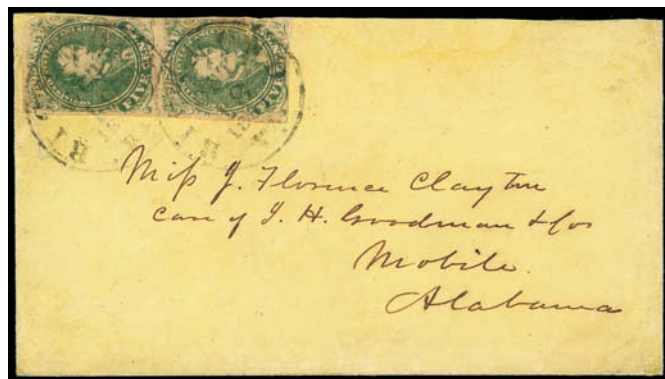 Miſs J. Florence Clayton
care of J. H. Goodman & Co
Mobile.
Alabama